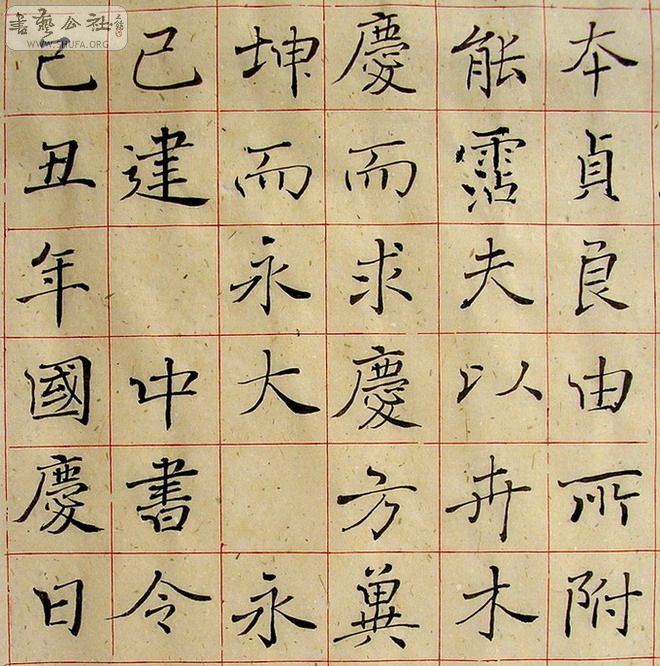 本貞良由所附
能霑夫以卉木
慶而求慶方冀
坤而永大 永
巳建 中書令
己丑年國慶日
書藝公社
WWW.SHUFA.ORG